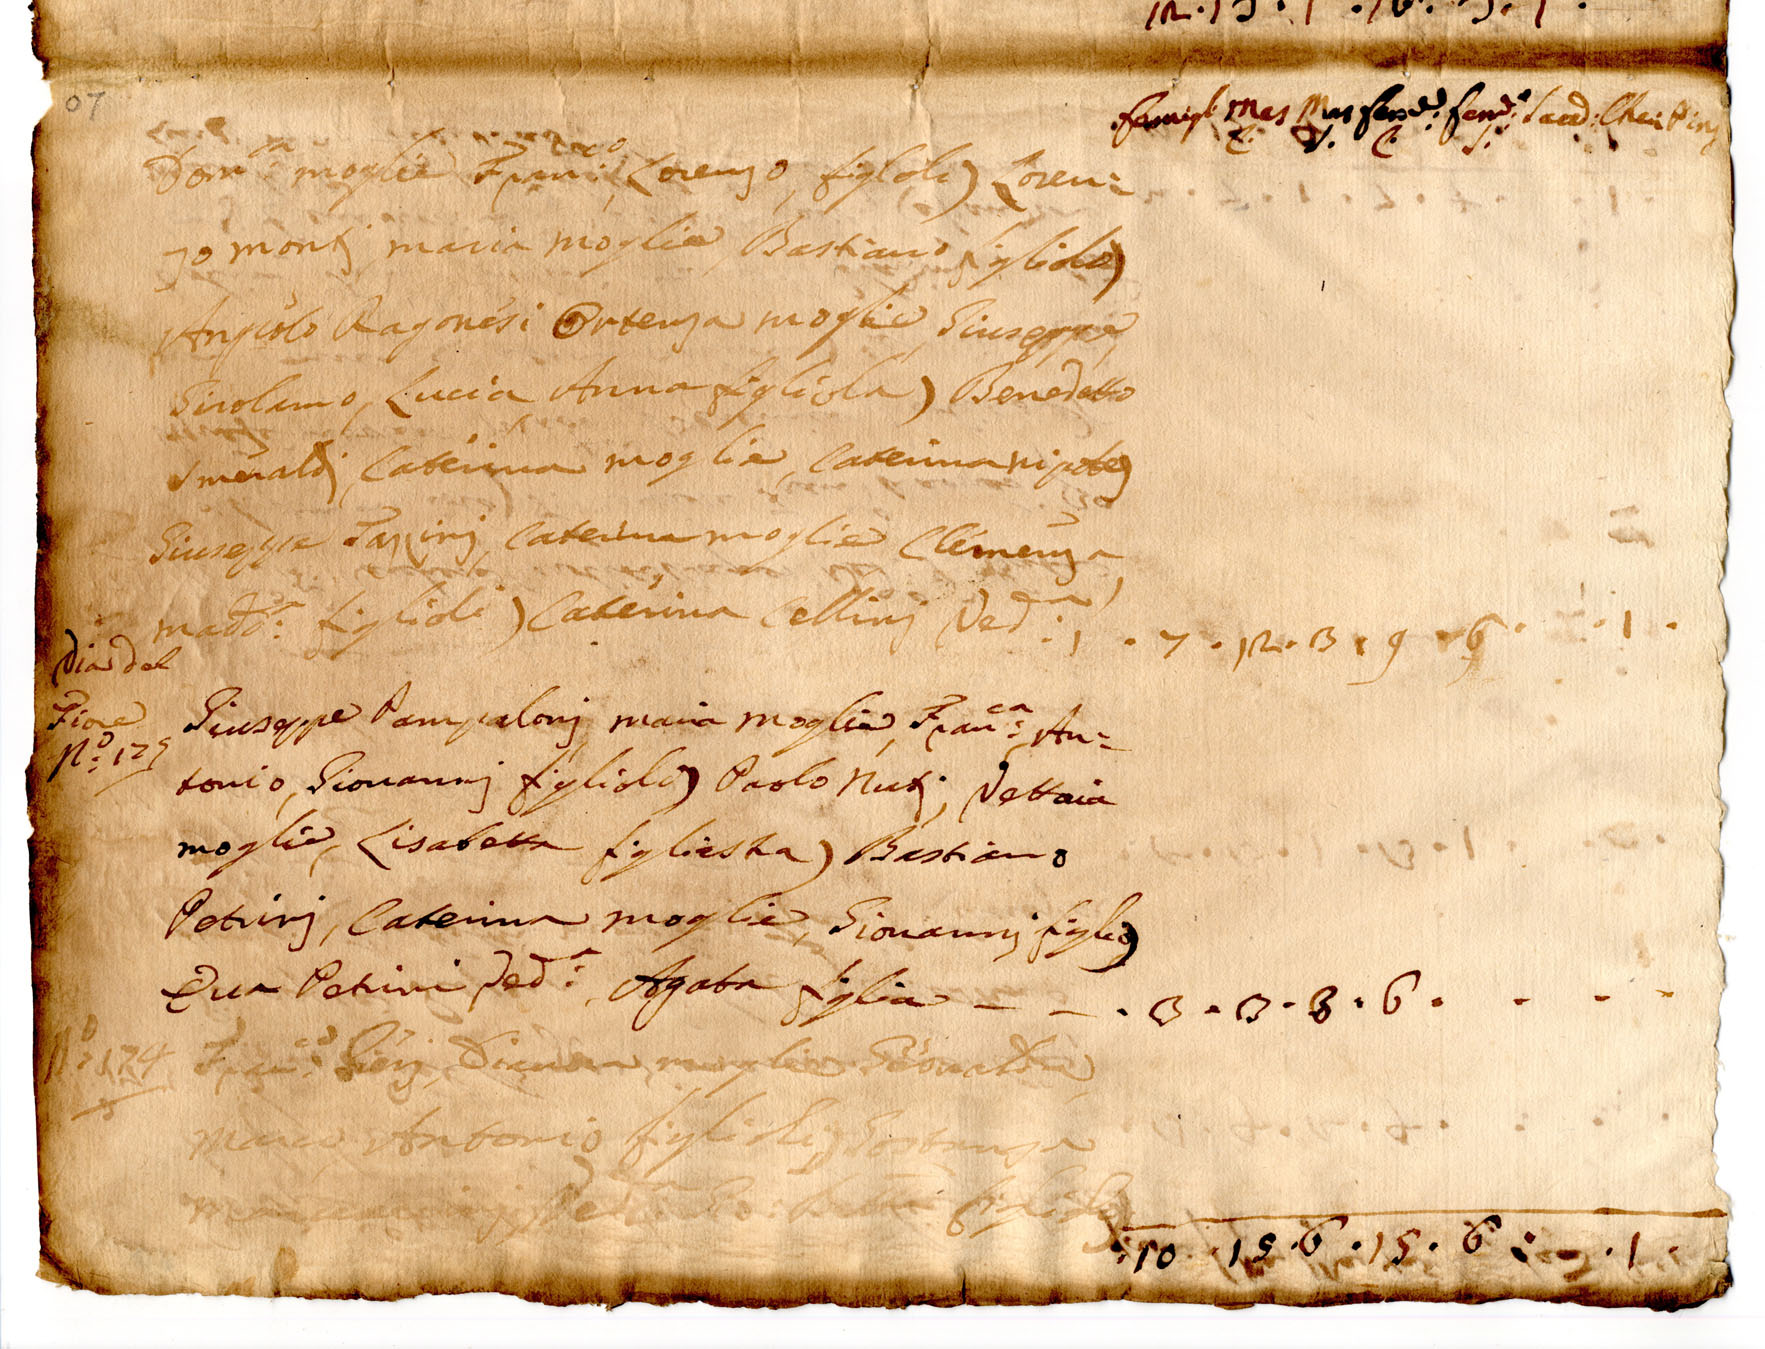 12 · 13 · 1 · 16 · 3 · 1 ·
07
famigl Mas Mas fem: fem: Sacd: Cheri Pinz
C. V. C. V.
Dom:ca moglie Fran:co Lorenzo, figlioli) Loren=
zo Montj maria moglie Bastiano figliolo)
Angiolo Ragonesi Ortenza moglie, Giuseppe,
Girolamo, Lucia, Anna figliola) Benedetto
Smeraldj, Caterina moglie, Caterina nipote)
Giuseppe Tapinj, Caterina moglie Clemenza,
madd:a figlioli) Caterina Cellinj Ved:a 1 · 7 · 12 · 3 · 9 · 6 · · 1 ·
Via del
Fiore
No: 175
Giuseppe Pampalonj maria moglie, Fran:ca An=
tonio, Giovannj figlioli) Paolo Nutj, Vettoria
moglie, Lisabetta figliastra) Bastiano
Petrinj, Caterina moglie, Giovannj figlio)
Eva Petrini Ved:a, Agata figlia — — · 3 · 3 · 3 · 6 · · · ·
No: 174
Fran:co Pierj, Diana moglie
Marco, Antonio figlioli)
figliolo
· 10 · 15 · 6 · 15 · 6 · · 1 ·